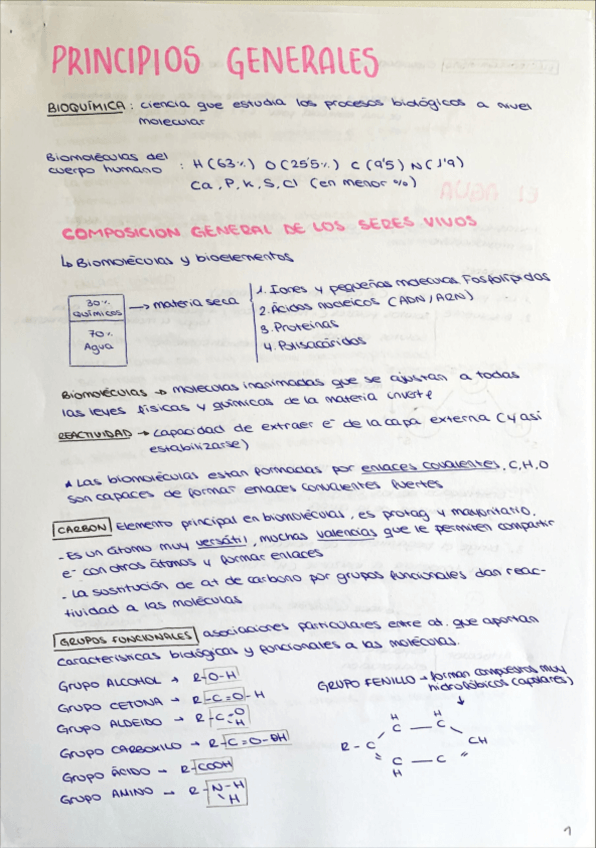 PRINCIPIOS GENERALES
BIOQUÍMICA : ciencia que estudia los procesos biológicos a nivel
molecular
Biomoléculas del
cuerpo humano : H (63%) O (25'5%) C (9'5) N (1'9)
Ca, P, K, S, Cl (en menor %)
COMPOSICION GENERAL DE LOS SERES VIVOS
↳ Biomoléculas y bioelementos
30% químicos → materia seca
70% Agua
1. Iones y pequeñas moleculas Fosfolípidos
2. Ácidos nucleicos (ADN/ARN)
3. Proteinas
4. Polisacáridos
Biomoléculas → moleculas inanimadas que se ajustan a todas
las leyes físicas y químicas de la materia inerte
REACTIVIDAD → capacidad de extraer e- de la capa externa (y así
estabilizarse)
* Las biomoléculas estan formadas por enlaces covalentes, C, H, O
son capaces de formar enlaces covalentes fuertes
CARBON Elemento principal en biomoléculas, es protag y mayoritario.
- Es un átomo muy versátil, muchas valencias que le permiten compartir
e- con otros átomos y formar enlaces
- La sustitución de at de carbono por grupos funcionales dan reac-
tividad a las moléculas
GRUPOS FUNCIONALES asociaciones particulares entre at. que aportan
características biológicas y funcionales a las moléculas.
Grupo ALCOHOL → R-O-H
Grupo CETONA → R-C=O-H
Grupo ALDEIDO → R-C=O
H
Grupo CARBOXILO → R-C=O-OH
Grupo ÁCIDO → R-COOH
Grupo AMINO → R-N-H
H
GRUPO FENILLO → forman compuestos muy
hidrofóbicos (apolares)
H H
C — C
R - C CH
C — C
H
1